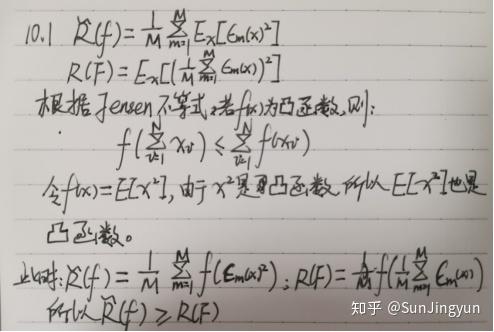 10.1 R̄(f) = 1/M ∑_{m=1}^{M} E_x[ϵ_m(x)²]
R(F) = E_x[(1/M ∑_{m=1}^{M} ϵ_m(x))²]
根据Jensen不等式,若f(x)为凸函数,则:
f(∑_{i=1}^{N} x_i) ≤ ∑_{i=1}^{N} f(x_i)
令f(x)=E[x²],由于x²是凸函数 所以E[x²]也是
凸函数。
此时:R̄(f) = 1/M ∑_{m=1}^{M} f(ϵ_m(x)²); R(F) = f(1/M ∑_{m=1}^{M} ϵ_m(x))
所以R̄(f) ≥ R(F)
知乎 @SunJingyun